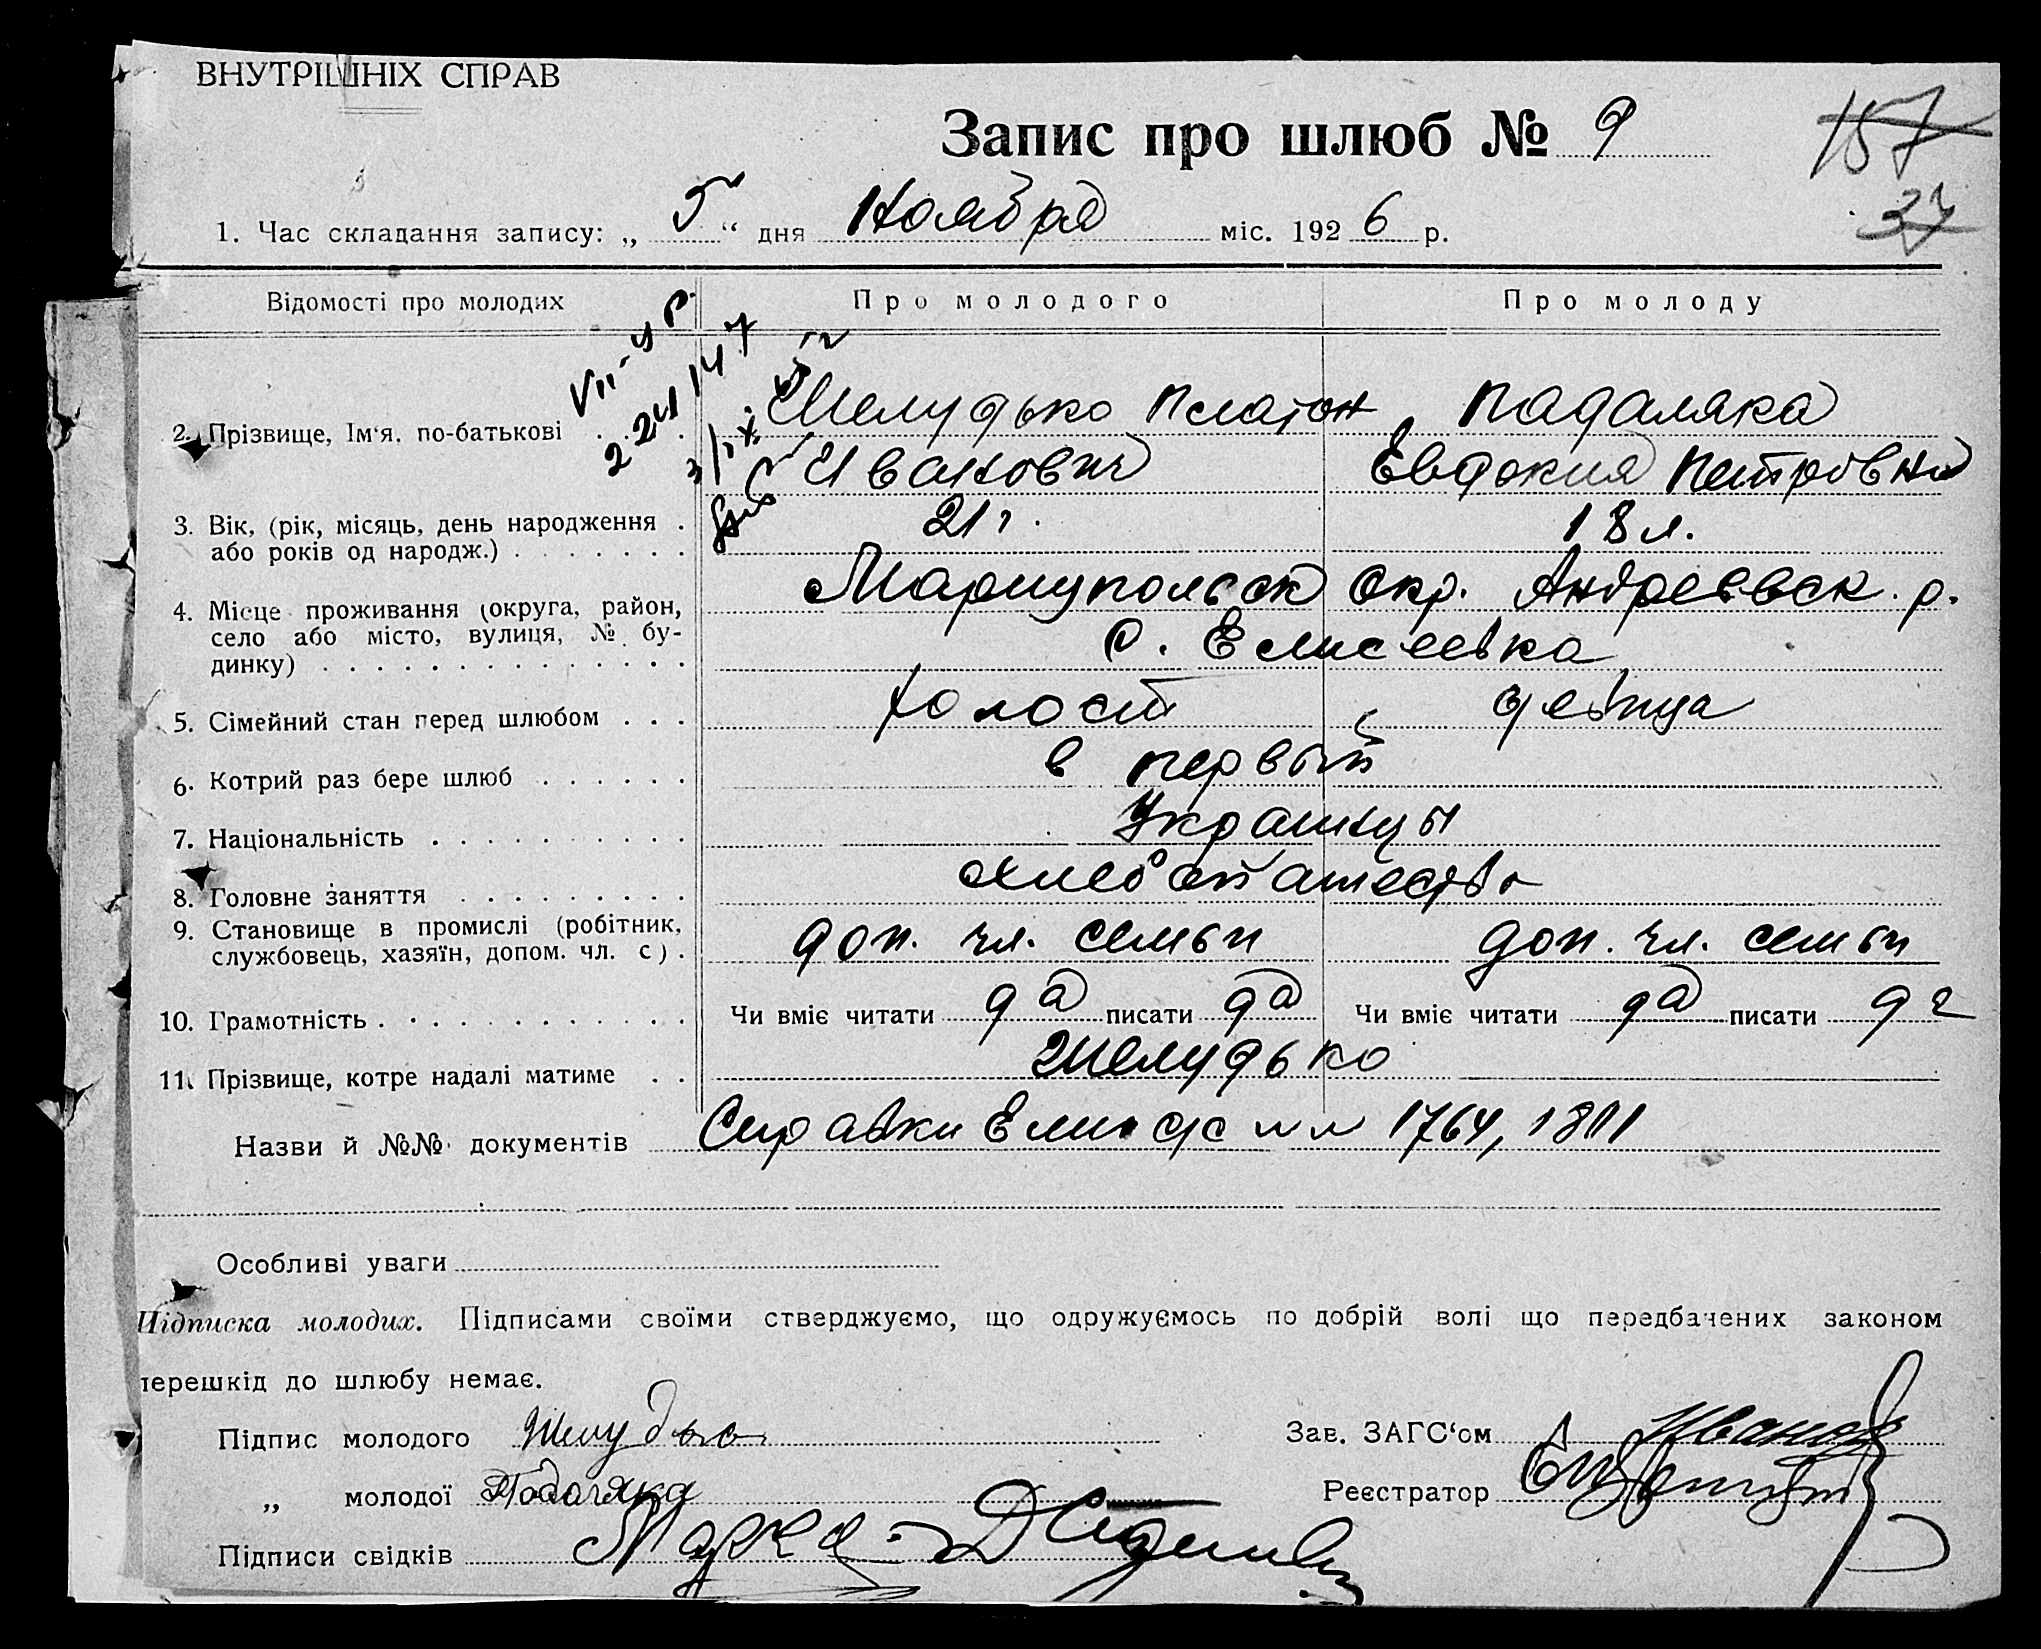 ВНУТРІШНІХ СПРАВ
Запис про шлюб № 9
157
37
1. Час складання запису: „ 5 “ дня Ноября міс. 1926 р.
Відомості про молодих
Про молодого
Про молоду
2. Прізвище, Ім'я. по-батькові . . . .
Шелудько Платон
Иванович
Падаляка
Евдокия Петровна
3. Вік, (рік, місяць, день народження .
або років од народж.) . . . . . . .
21 г.
18 л.
4. Місце проживання (округа, район,
село або місто, вулиця, № бу-
динку) . . . . . . . . . . . . . .
Мариупольск окр. Андреевск. р.
с. Елисеевка
5. Сімейний стан перед шлюбом . . .
холост
девица
6. Котрий раз бере шлюб . . . . . .
в первый
7. Національність . . . . . . . . . .
Украинцы
8. Головне заняття . . . . . . . . .
хлебопашество
9. Становище в промислі (робітник,
службовець, хазяїн, допом. чл. с) .
доп. чл. семьи
доп. чл. семьи
10. Грамотність . . . . . . . . . . . .
Чи вміє читати да писати да
Чи вміє читати да писати да
11. Прізвище, котре надалі матиме . .
Шелудько
Назви й №№ документів Справки Елис с/с № № 1764, 1811
Особливі уваги
Підписка молодих. Підписами своїми стверджуємо, що одружуємось по добрій волі що передбачених законом
перешкід до шлюбу немає.
Підпис молодого Шелудько
Зав. ЗАГС'ом Иванов
„ молодої Падаляка
Реєстратор
Підписи свідків